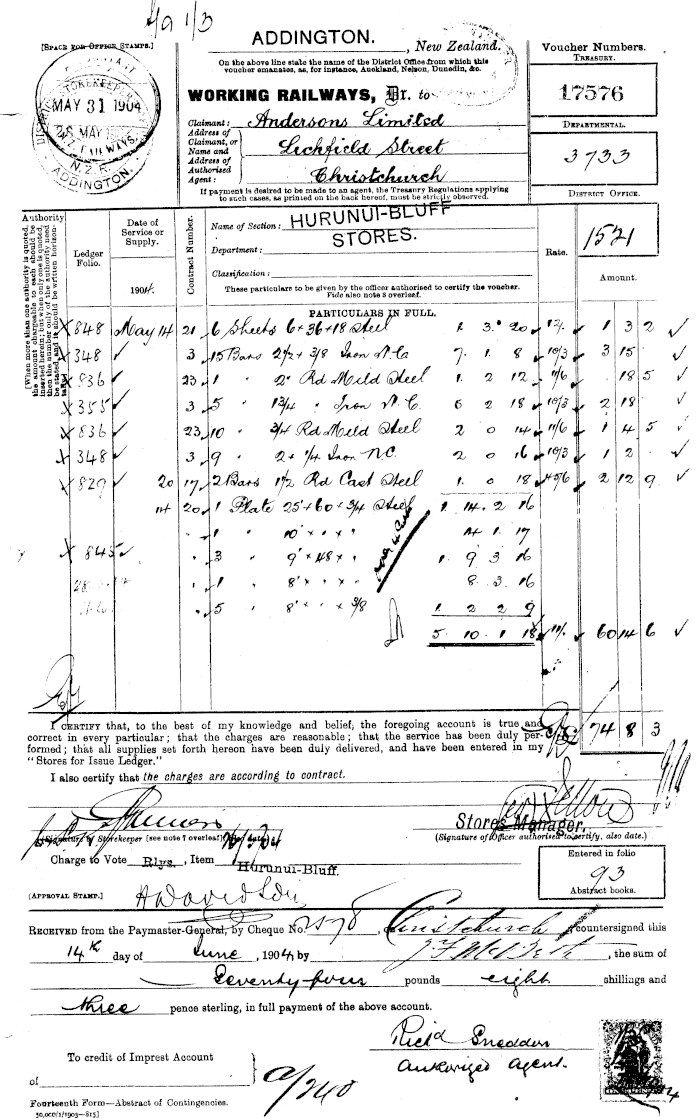 ADDINGTON.
[SPACE FOR OFFICE STAMPS.]
, New Zealand.
On the above line state the name of the District Office from which this
voucher emanates, as, for instance, Auckland, Nelson, Dunedin, &c.
WORKING RAILWAYS, Dr. to
Claimant: Andersons Limited
Address of
Claimant, or
Name and
Address of
Authorised
Agent:
Lichfield Street
Christchurch
If payment is desired to be made to an agent, the Treasury Regulations applying
to such cases, as printed on the back hereof, must be strictly observed.
MAY 31 1904
N.Z.R.
ADDINGTON.
Voucher Numbers.
TREASURY.
17576
DEPARTMENTAL.
3733
DISTRICT OFFICE.
1521
Authority
[When more than one authority is quoted,
the amount chargeable to each should be
inserted herein; but when only one is quoted,
then the number only of the authority need
be stated, and it should be written horizon-
tally.]
Ledger
Folio.
Date of
Service or
Supply.
1904.
Contract Number.
Name of Section: HURUNUI-BLUFF
Department: STORES.
Classification:
These particulars to be given by the officer authorised to certify the voucher.
Vide also note 8 overleaf.
Rate.
Amount.
PARTICULARS IN FULL.
848 May 14 21 6 Sheets 6 × 36 × 18 Steel 1. 3. 20 1 3 2
348 3 15 Bars 2½ × 3/8 Iron N.C. 7. 1. 8 10/3 3 15
836 23 1 " 2" Rd Mild Steel 1 2 12 11/6 18 5
355 3 5 " 1¾ " Iron N.C. 2 18 10/3 2 18
836 23 10 " ¾ Rd Mild Steel 2 0 14 11/6 1 4 5
348 3 9 " 2 × ¼ Iron N.C. 2 0 16 10/3 1 2
829 20 17 2 Bars 1½ Rd Cast Steel 1. 0 18 45/6 2 12 9
14 20 1 Plate 25' × 60 × ¾ Steel 1. 14. 2 16
" 1 " 10' × " × " 14 1. 17
845 " 3 " 9' × 48 × " 1. 9 3 16
" 1 " 8' × " × " 8. 3. 16
" 5 " 8' × " × 3/8 1 2 2 9
5 10 1 18 11/. 60 14 6
74 8 3
I CERTIFY that, to the best of my knowledge and belief, the foregoing account is true and
correct in every particular; that the charges are reasonable; that the service has been duly per-
formed; that all supplies set forth hereon have been duly delivered, and have been entered in my
"Stores for Issue Ledger."
I also certify that the charges are according to contract.
Stores Manager.
(Signature of Storekeeper [see note 7 overleaf]
(Signature of Officer authorised to certify, also date.)
Charge to Vote Rlys., Item Hurunui-Bluff.
Entered in folio
93
Abstract books.
(APPROVAL STAMP.)
RECEIVED from the Paymaster-General, by Cheque No. 2578, Christchurch, countersigned this
14th day of June, 1904, by , the sum of
Seventy four pounds eight shillings and
three pence sterling, in full payment of the above account.
Richd Sneddon
Authorized agent.
To credit of Imprest Account
of
a/240
Fourteenth Form—Abstract of Contingencies.